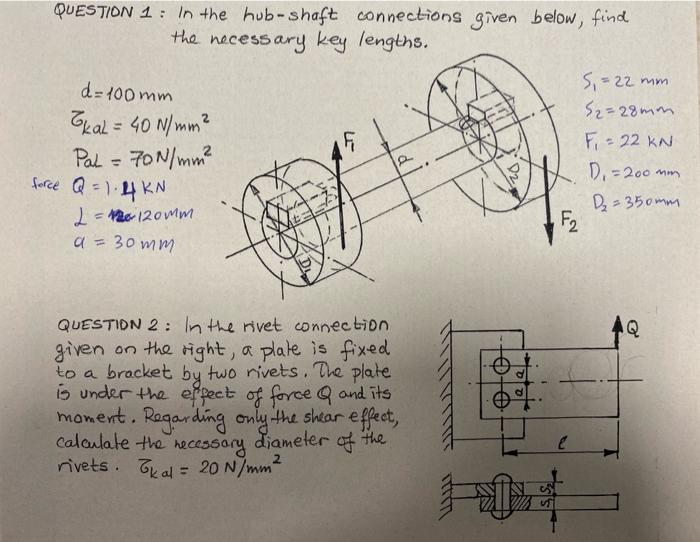 QUESTION 1 : In the hub-shaft connections given below, find
the necessary key lengths.
d = 100 mm
τkal = 40 N/mm²
Pal = 70 N/mm²
force Q = 1.4 KN
L = 120 mm
a = 30 mm
F₁
d
D₂
D₁
F₂
S₁ = 22 mm
S₂ = 28 mm
F₁ = 22 KN
D₁ = 200 mm
D₂ = 350 mm
QUESTION 2 : In the rivet connection
given on the right, a plate is fixed
to a bracket by two rivets. The plate
is under the effect of force Q and its
moment. Regarding only the shear effect,
calculate the necessary diameter of the
rivets. τkal = 20 N/mm²
Q
a
a
l
S₁ S₂